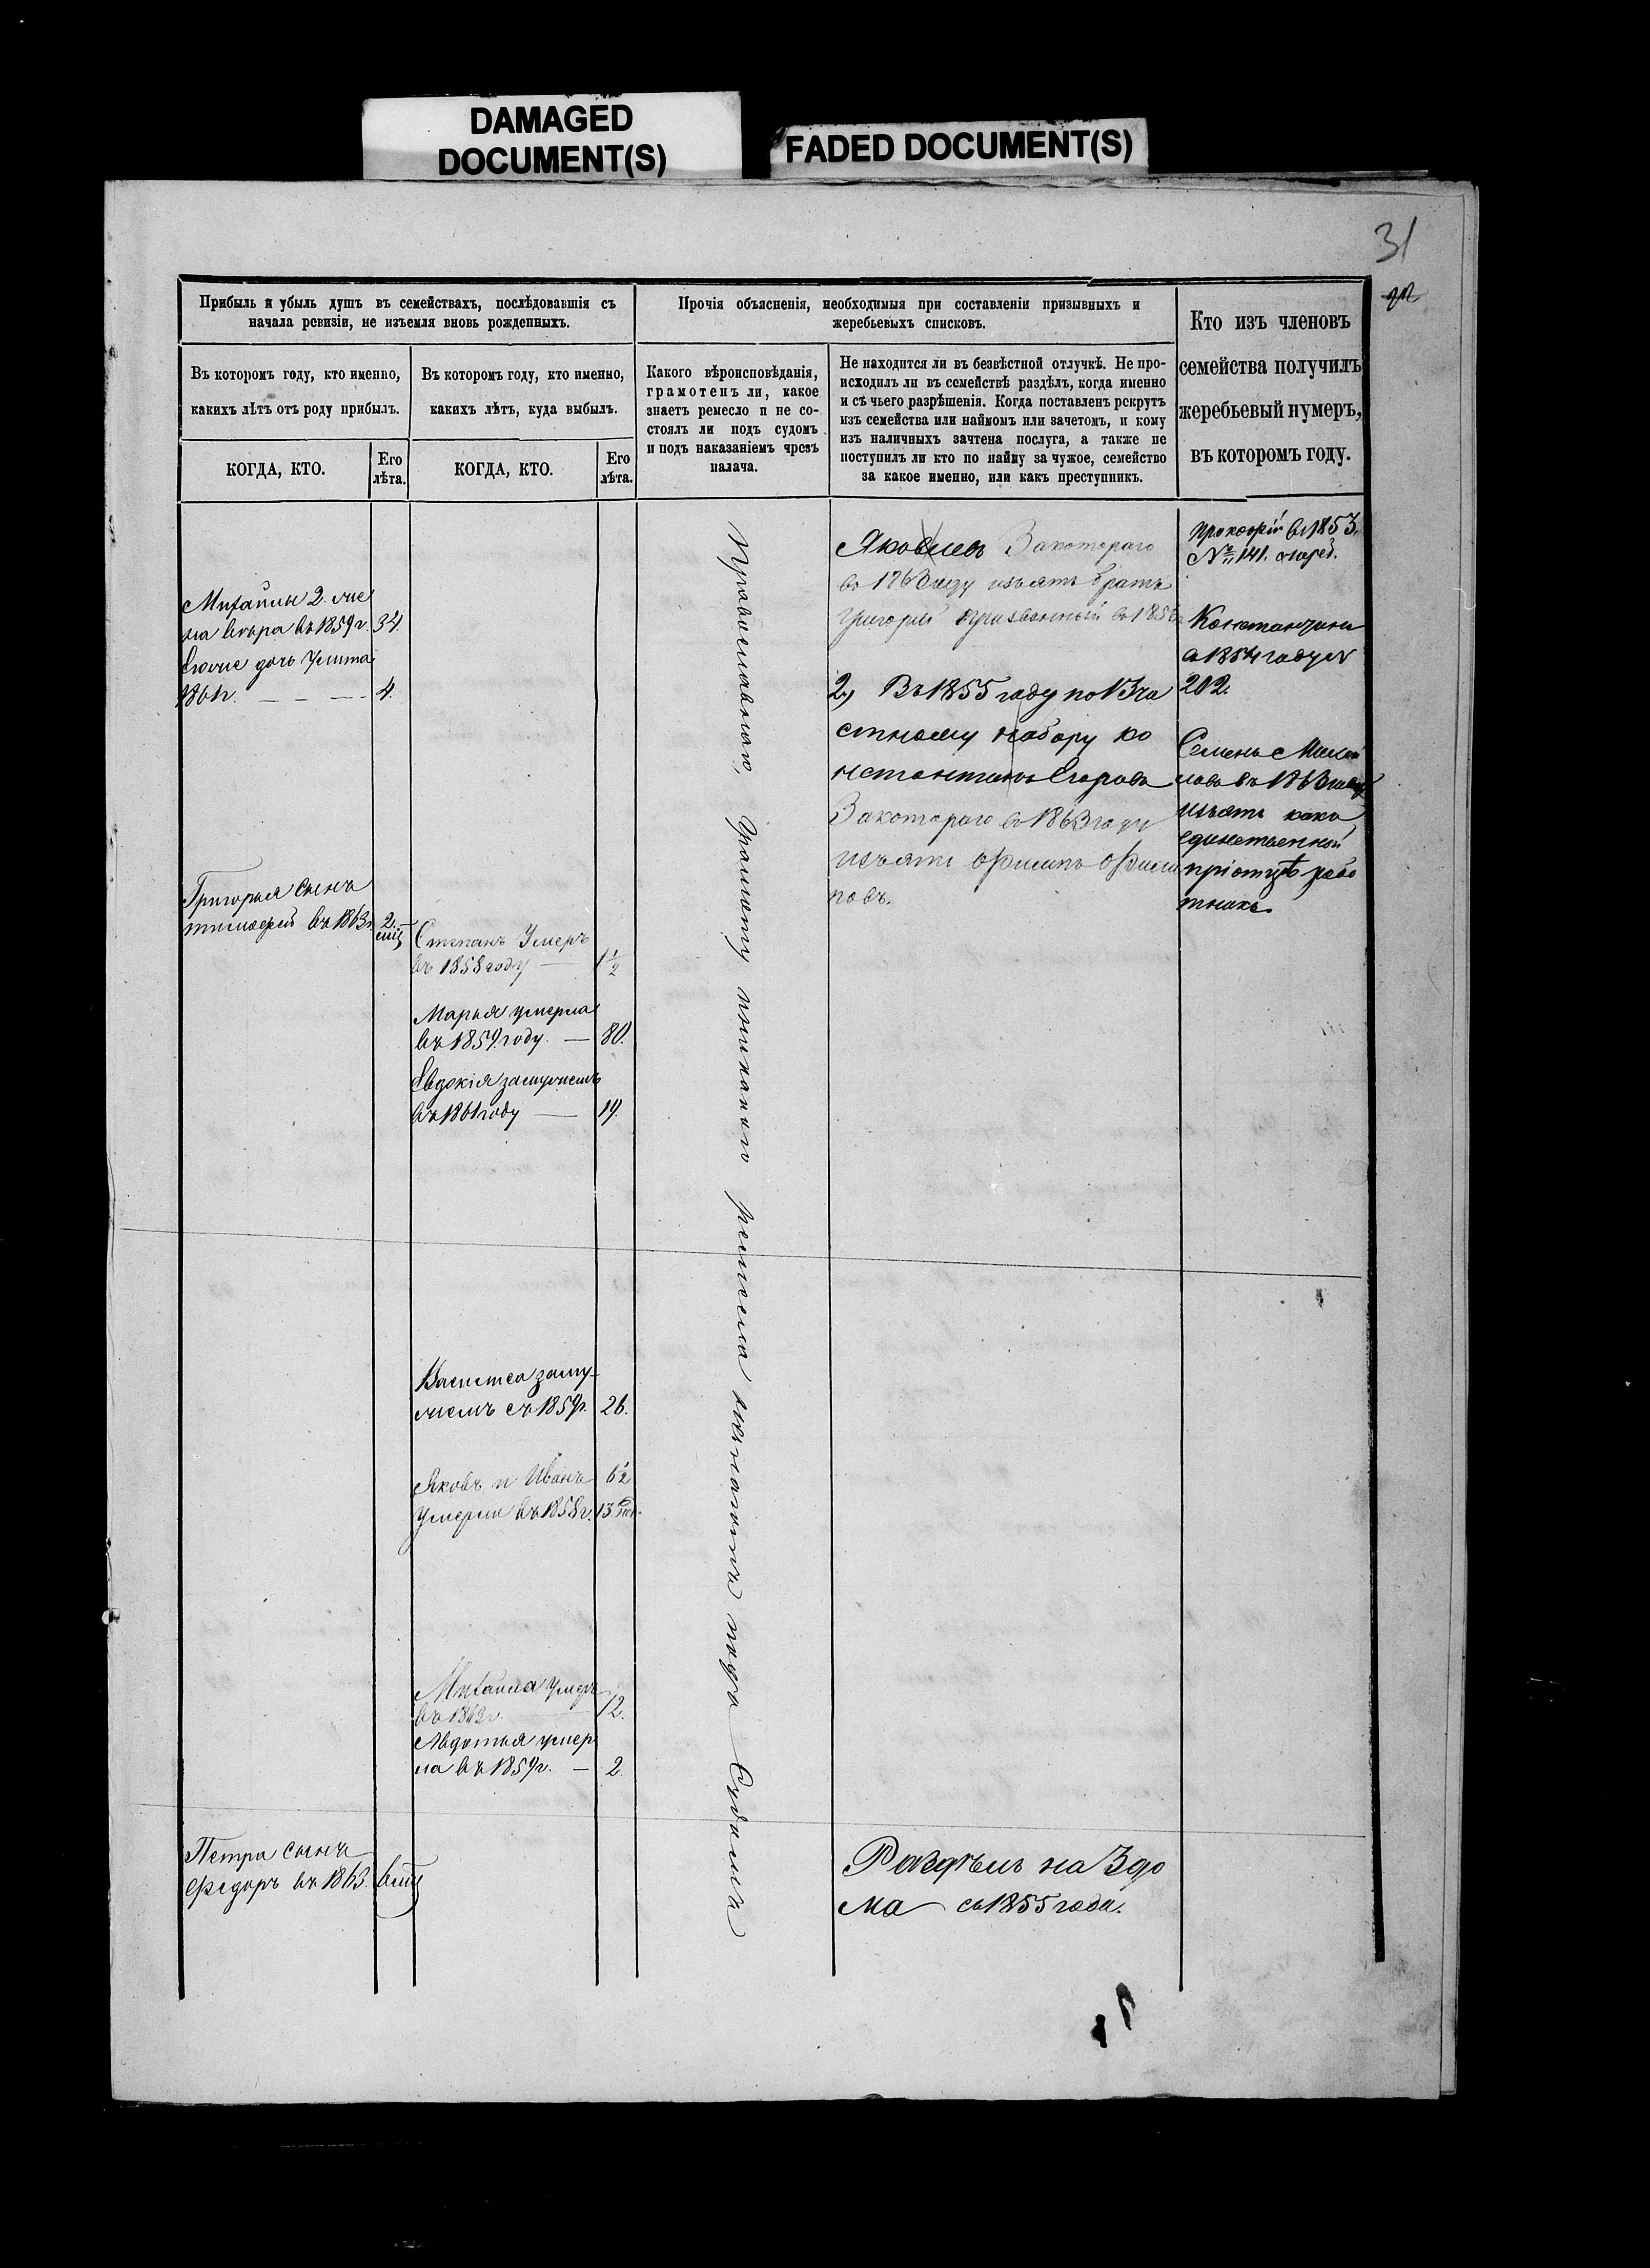 DAMAGED
DOCUMENT(S)
FADED DOCUMENT(S)
31
Прибыль и убыль душъ въ семействахъ, послѣдовавшія съ
начала ревизіи, не изъемля вновь рожденныхъ.
Въ которомъ году, кто именно,
какихъ лѣтъ отъ роду прибылъ.
КОГДА, КТО.
Его
лѣта.
Въ которомъ году, кто именно,
какихъ лѣтъ, куда выбылъ.
КОГДА, КТО.
Его
лѣта.
Прочія объясненія, необходимыя при составленіи призывныхъ и
жеребьевыхъ списковъ.
Какого вѣроисповѣданія,
грамотенъ ли, какое
знаетъ ремесло и не со-
стоялъ ли подъ судомъ
и подъ наказаніемъ чрезъ
палача.
Не находится ли въ безвѣстной отлучкѣ. Не про-
исходилъ ли въ семействѣ раздѣлъ, когда именно
и съ чьего разрѣшенія. Когда поставленъ рекрутъ
изъ семейства или наймомъ или зачетомъ, и кому
изъ наличныхъ зачтена послуга, а также не
поступилъ ли кто по найму за чужое, семейство
за какое именно, или какъ преступникъ.
Кто изъ членовъ
семейства получилъ
жеребьевый нумеръ,
въ которомъ году.
Михайлы 2. же
на въ 1859г. 34.
дочь
1861г. 4.
Григорья сынъ
тимофей въ 1863г. 2
Степанъ Умеръ
въ 1858 году 1 1/2
Марья умерла
въ 1859 году. 80.
Евдокія замужемъ
въ 1861 году 19.
Василиса заму-
жемъ съ 1859г. 26.
Яковъ и Иванъ 6 1/2
Умерли въ 1858г. 13
Михайла умеръ
въ 1863г. 12.
Авдотья умер
ла въ 1859г. 2.
Петра сынъ
Федоръ въ 1863.
Православнаго, Грамоту никакого ремесла подъ Судомъ
Яковлевъ За котораго
въ году изъятъ братъ
Григорій призванный въ
2) Въ 1855 году по 13 ча
стному набору ко
нстантинъ Егоровъ
За котораго въ 1863 году
изъятъ Филипъ Фили
повъ.
Раздѣлъ на 3 до
ма съ 1855 года.
Прокофій въ 1853.
№ 141.
Константинъ
въ 1854 году №
202.
Семенъ
въ 1863 году
изъятъ какъ
единственный
при отцѣ рабо
тникъ.